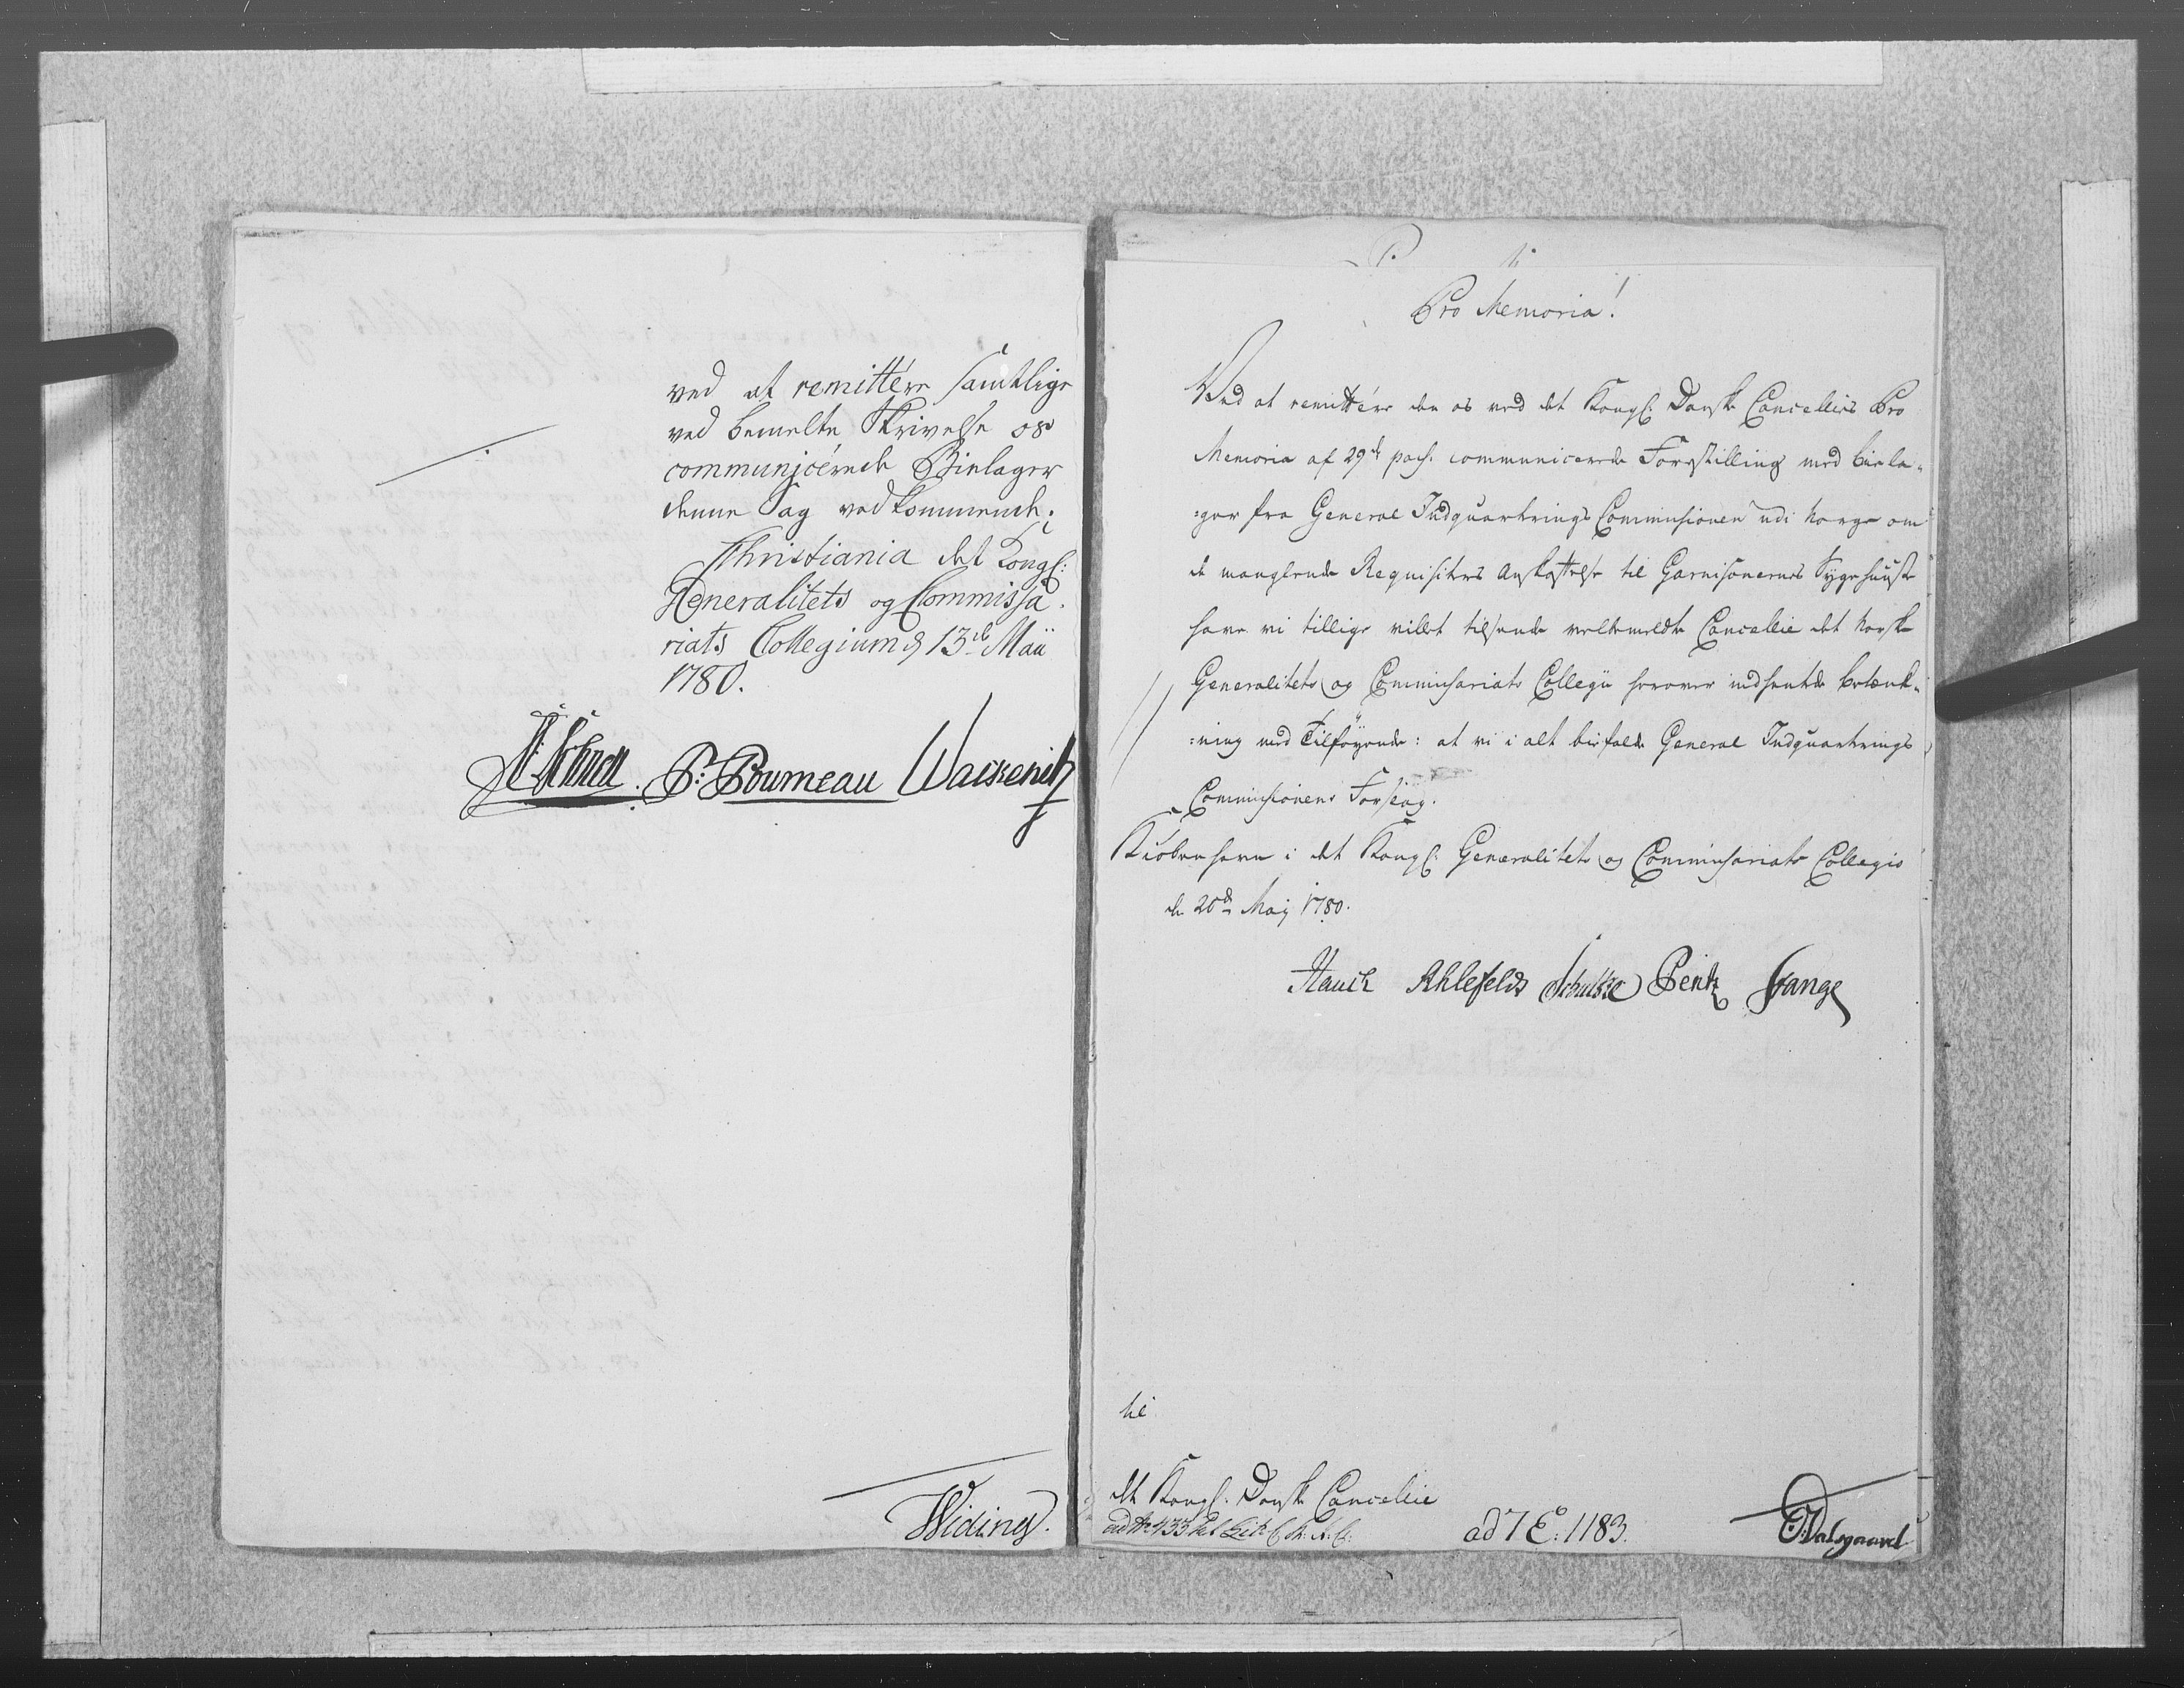 ved at remittére samtlige
ved bemelte Skrivelse os
communicérede Bielager
denne Sag vedkommende;
Christiania det Kongl:
Generalitets og Commissa-
riats Collegium d 13de Maii
1780.
P: Poumeau
Widing.
Pro Memoria!
Ved at remittére den os med det Kongl: Danske Cancellies Pro
Memoria af 29de pass. communicerede Forestilling med biela-
:ger fra General Indquarterings Commissionen udi Norge om
de manglende Requisiters anskaffelse til Garnisonernes Sygehuuse
have vi tillige villet tilsende velbemeldte Cancellie det Norske
Generalitets og Commissariats Collegii herover indhentede betænk-
:ning med Tilføyende: at vi i alt biefalde General Indquarterings
Commissionens Forslag.
Kiøbenhavn i det Kongl: Generalitets og Commissariats Collegio
de 20de Maj 1780.
Hauch Ahlefeldt Schultze Bentz Lange
til
det Kongl: Danske Cancellie
ad No 433
ad 7 E: 1183.
Dalsgaard